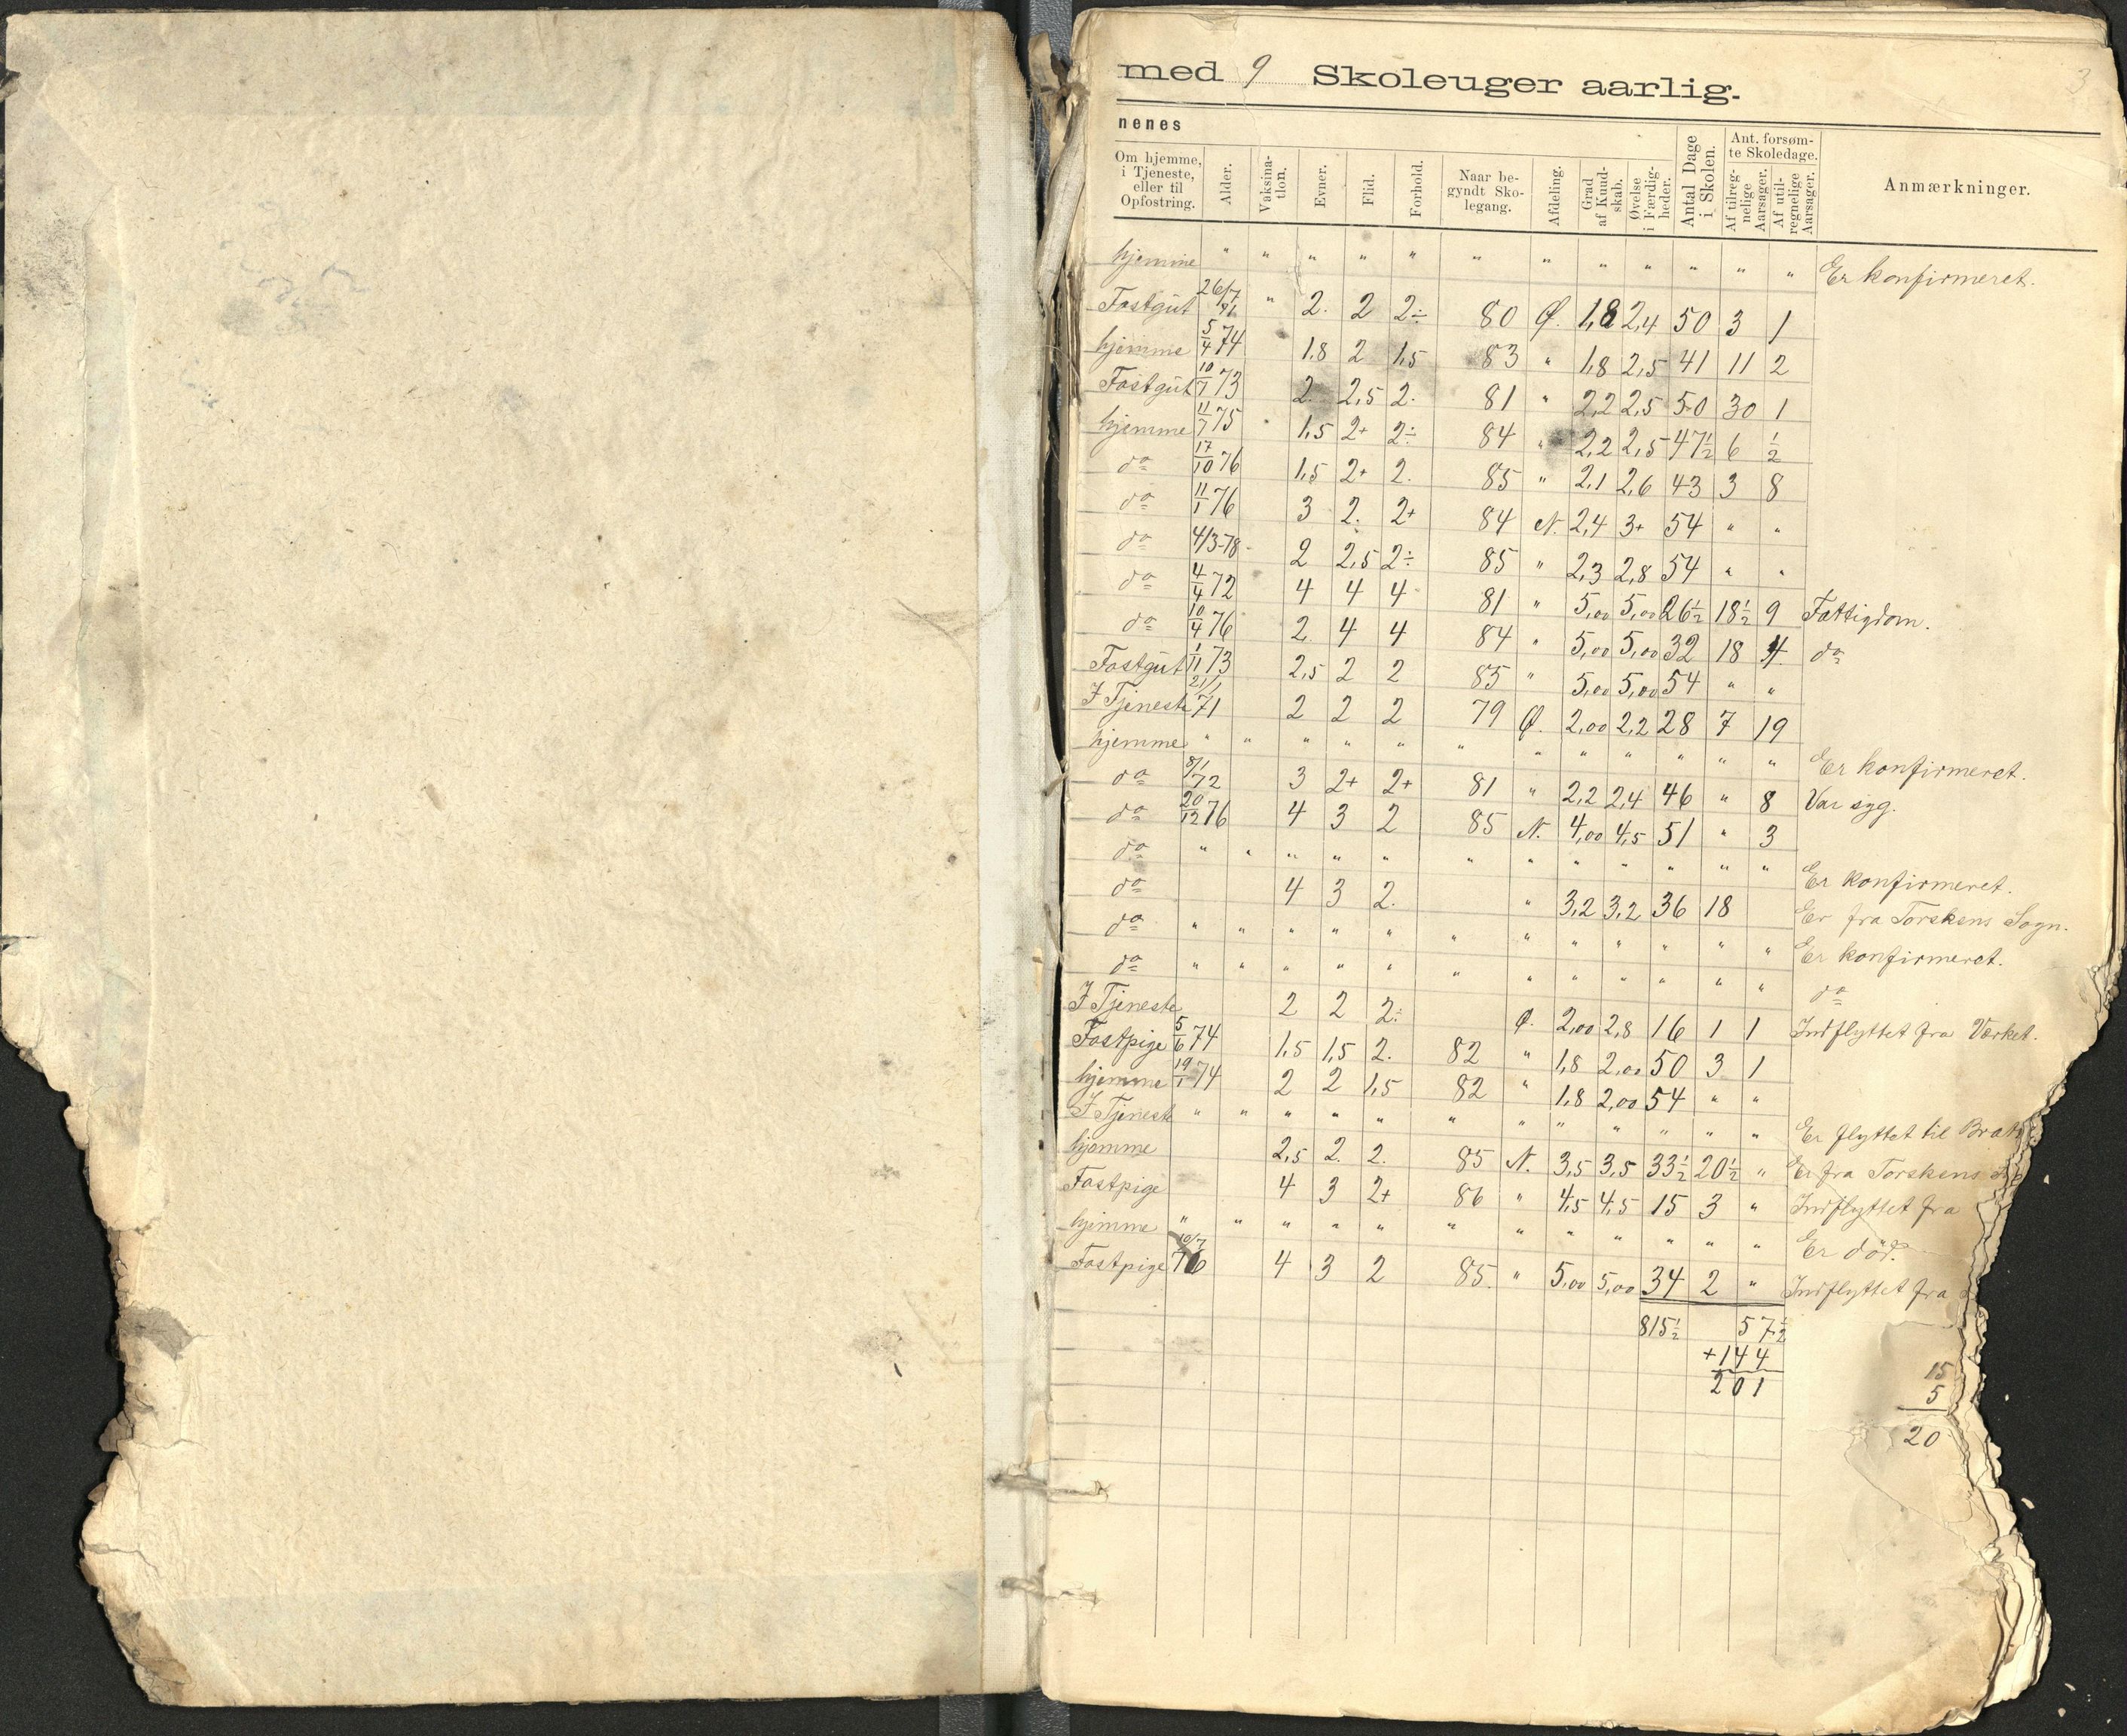 3
med 9 Skoleuger aarlig.
nenes
Om hjemme, i Tjeneste, eller til Opfostring. Alder. Vaksination. Evner. Flid. Forhold. Naar begyndt Skolegang. Afdeling. Grad af Kundskab. Øvelse i Færdigheder. Antal Dage i Skolen. Ant. forsømte Skoledage. Af tilregnelige Aarsager. Af utilregnelige Aarsager. Anmærkninger.
hjemme " " " " " " " " " " " " Er konfirmeret.
Fostgut 26/7 71 " 2. 2 2÷ 80 Ø. 1,8 2,4 50 3 1
hjemme 5/4 74 1,8 2 1,5 83 " 1,8 2,5 41 11 2
Fostgut 10/7 73 2. 2,5 2. 81 " 2,2 2,5 50 30 1
hjemme 11/7 75 1,5 2+ 2÷ 84 " 2,2 2,5 47½ 6 ½
do 17/10 76 1,5 2+ 2. 85 " 2,1 2,6 43 3 8
do 11/1 76 3 2. 2+ 84 N. 2,4 3+ 54 " "
do 4/3-78 2 2,5 2÷ 85 " 2,3 2,8 54 " "
do 4/4 72 4 4 4 81 " 5,00 5,00 26½ 18½ 9 Fattigdom.
do 10/4 76 2 4 4 84 " 5,00 5,00 32 18 4 do
Fostgut 1/11 73 2,5 2 2 85 " 5,00 5,00 54 " "
I Tjeneste 21/1 71 2 2 2 79 Ø. 2,00 2,2 28 7 19
hjemme " " " " " " " " " " " " Er konfirmeret.
do 8/1 72 3 2+ 2+ 81 " 2,2 2,4 46 " 8 Var syg.
do 20/12 76 4 3 2 85 N. 4,00 4,5 51 " 3
do " " " " " " " " " " " " Er konfirmeret.
do 4 3 2. " 3,2 3,2 36 18 Er fra Torskens Sogn.
do " " " " " " " " " " " " Er konfirmeret.
do " " " " " " " " " " " " do
I Tjeneste 2 2 2÷ Ø. 2,00 2,8 16 1 1 Indflyttet fra Værket.
Fostpige 5/6 74 1,5 1,5 2. 82 " 1,8 2,00 50 3 1
hjemme 19/1 74 2 2 1,5 82 " 1,8 2,00 54 " "
I Tjeneste " " " " " " " " " " " " Er flyttet til
hjemme 2,5 2. 2. 85 N. 3,5 3,5 33½ 20½ " Er fra Torskens
Fostpige 4 3 2+ 86 " 4,5 4,5 15 3 " Indflyttet fra
hjemme " " " " " " " " " " " " Er död.
Fostpige 10/7 76 4 3 2 85. " 5,00 5,00 34 2 " Indflyttet fra
815½ 57½
+144
201
15
5
20